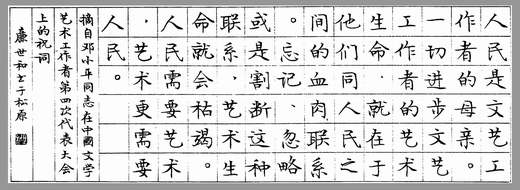 人民是文艺工
作者的母亲。
一切进步文艺
工作者的艺术
生命，就在于
他们同人民之
间的血肉联系
。忘记、忽略
或是割断这种
联系，艺术生
命就会枯竭。
人民需要艺术
，艺术更需要
人民。
摘自邓小平同志在中國文学
艺术工作者第四次代表大会
上的祝词
廉世和书于松原